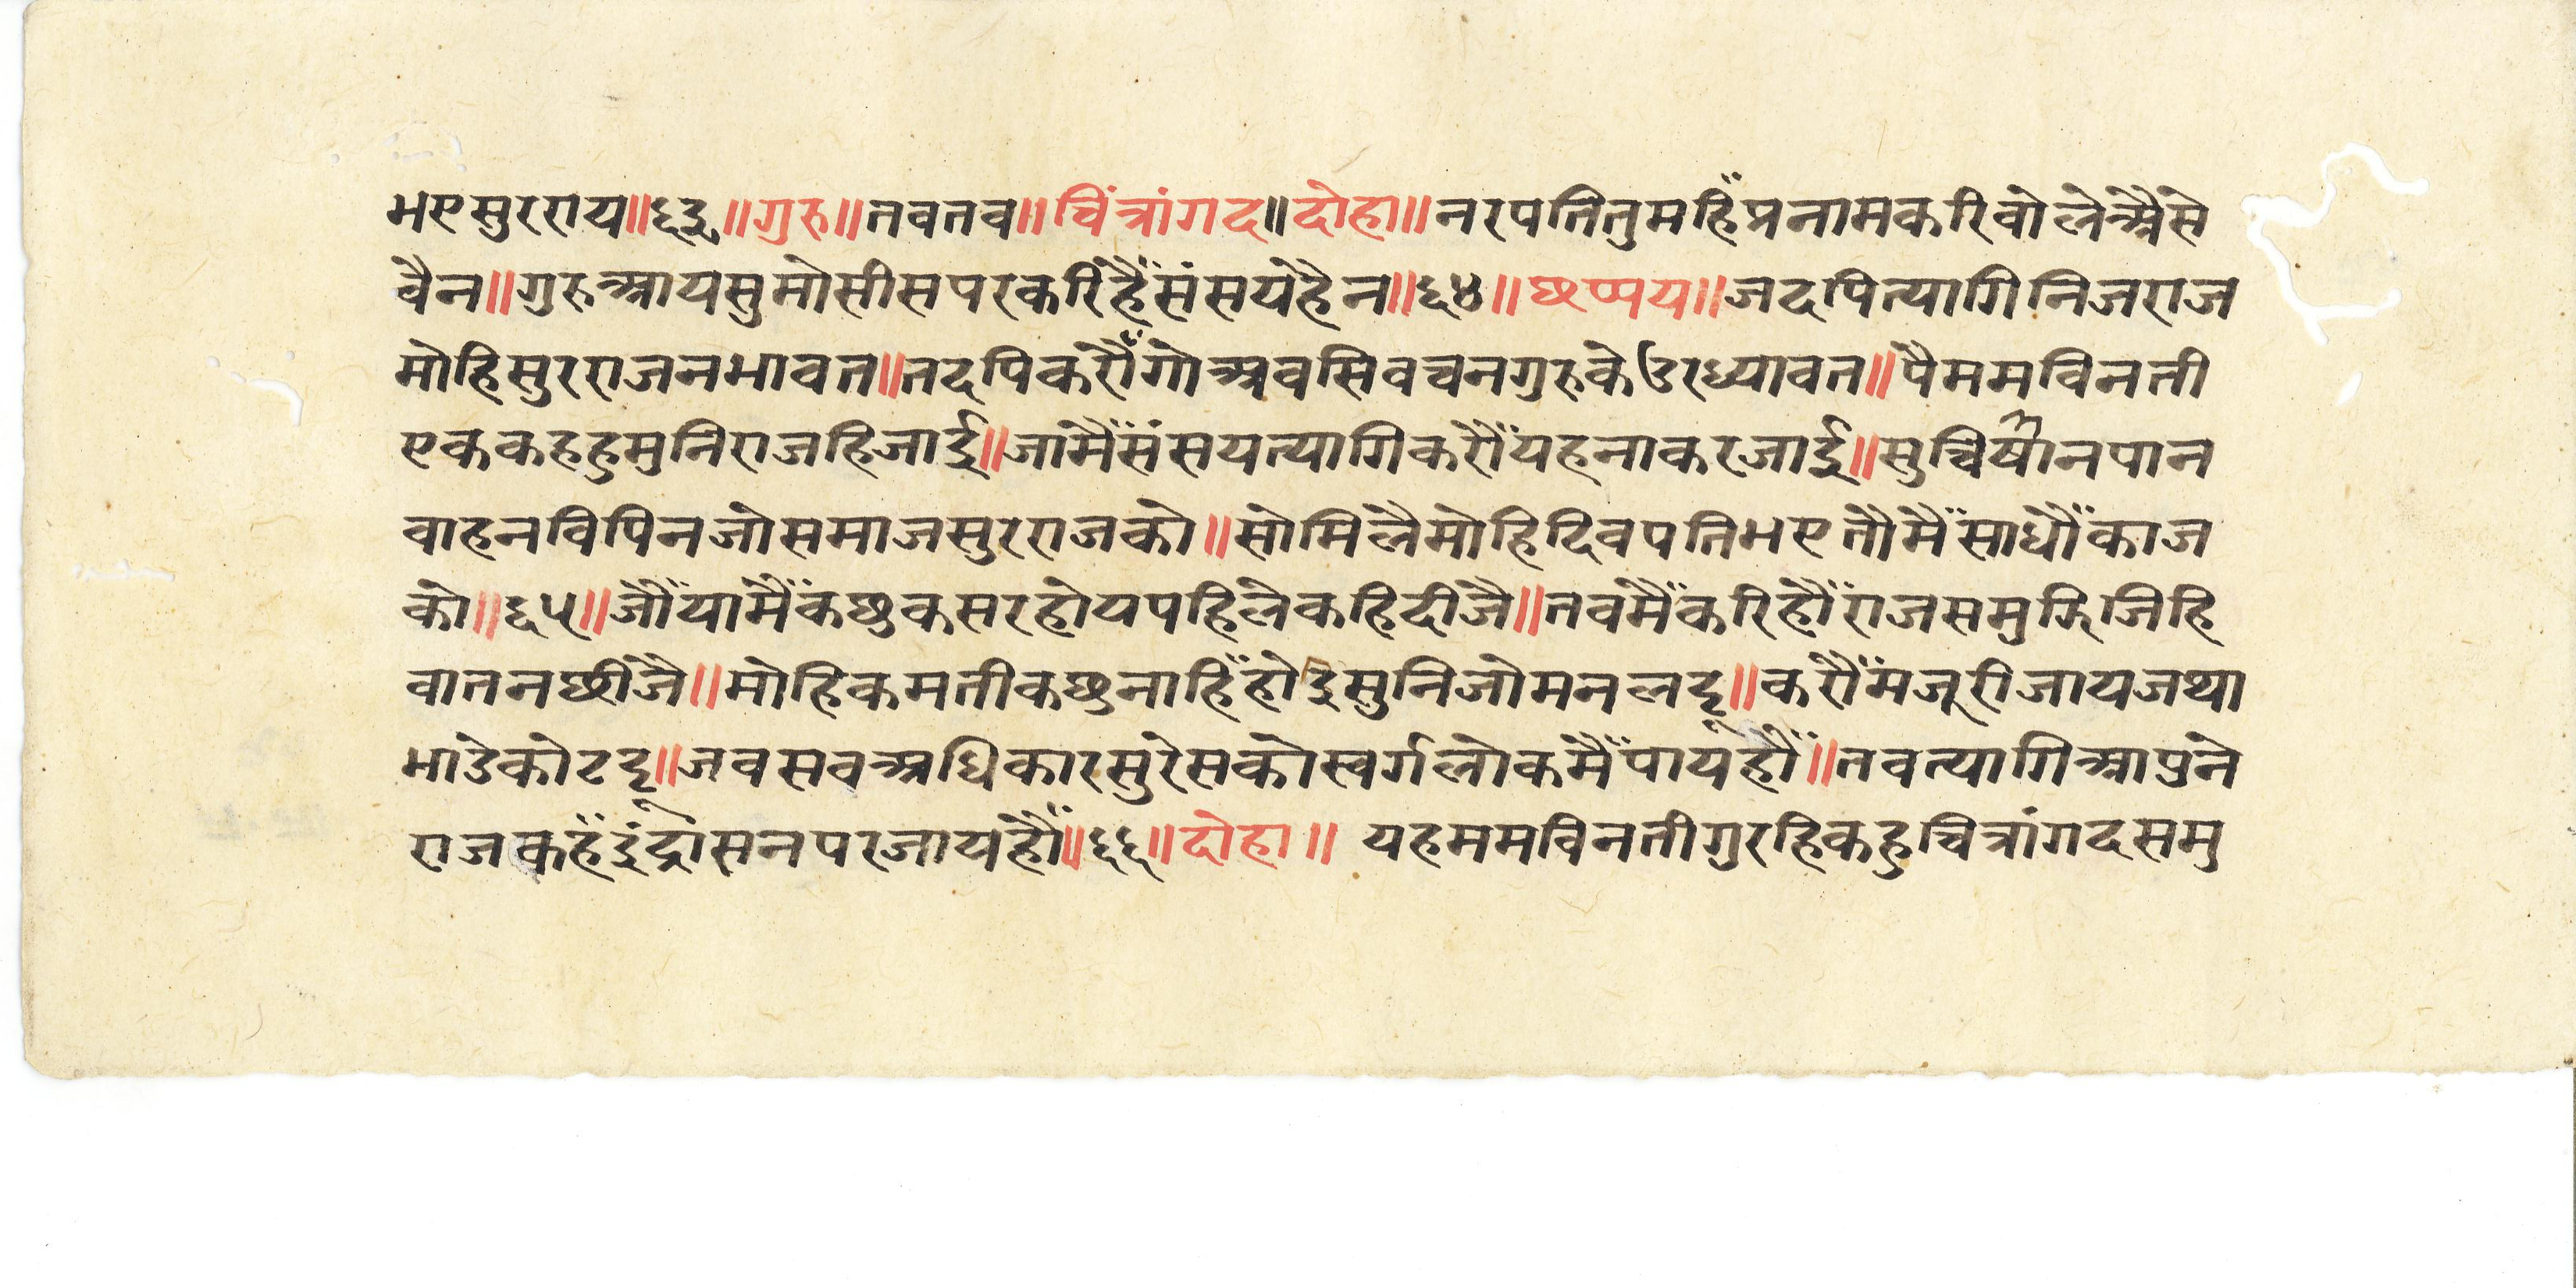 भएसुरराय॥६३॥गुरु॥तवतव॥चिंत्रांगद॥दोहा॥नरपतितुमहिँप्रनामकरिवोलेअैसे
वैन॥गुरुआयसुमोसीसपरकरिंहैँसंसयहैन॥६४॥छप्पय॥जदपित्यागिनिजराज
मोहिसुरराजनभावत॥तदपिकरौँगोअवसिवचनगुरुकेउरध्यावत॥पैममविनती
एककहहुमुनिराजहिजाई॥जामैँसंसयत्यागिकरौँयहनाकरजाई॥सुचिषानपान
वाहनविपिनजोसमाजसुरराजको॥सोमिलैमोहिदिवपतिभएतौमैँसाधौँकाज
को॥६५॥जौँयामैँकछुकसरहोयपहिलेकहिदीजै॥तवमैँकरिहौँराजसमुझिजिहि
वातनछीजै॥मोहिकमतीकछुनाहिँहोइसुनिजोमनलट्टू॥करौँमजूरीजायजथा
भाडेकोटट्टू॥जवसवअधिकारसुरेसकोस्वर्गलोकमैँपायहौँ॥तवत्यागिआपुने
राजकहँइंद्रासनपरजायहौँ॥६६॥दोहा॥ यहममविनतीगुरहिकहुचित्रांगदसमु